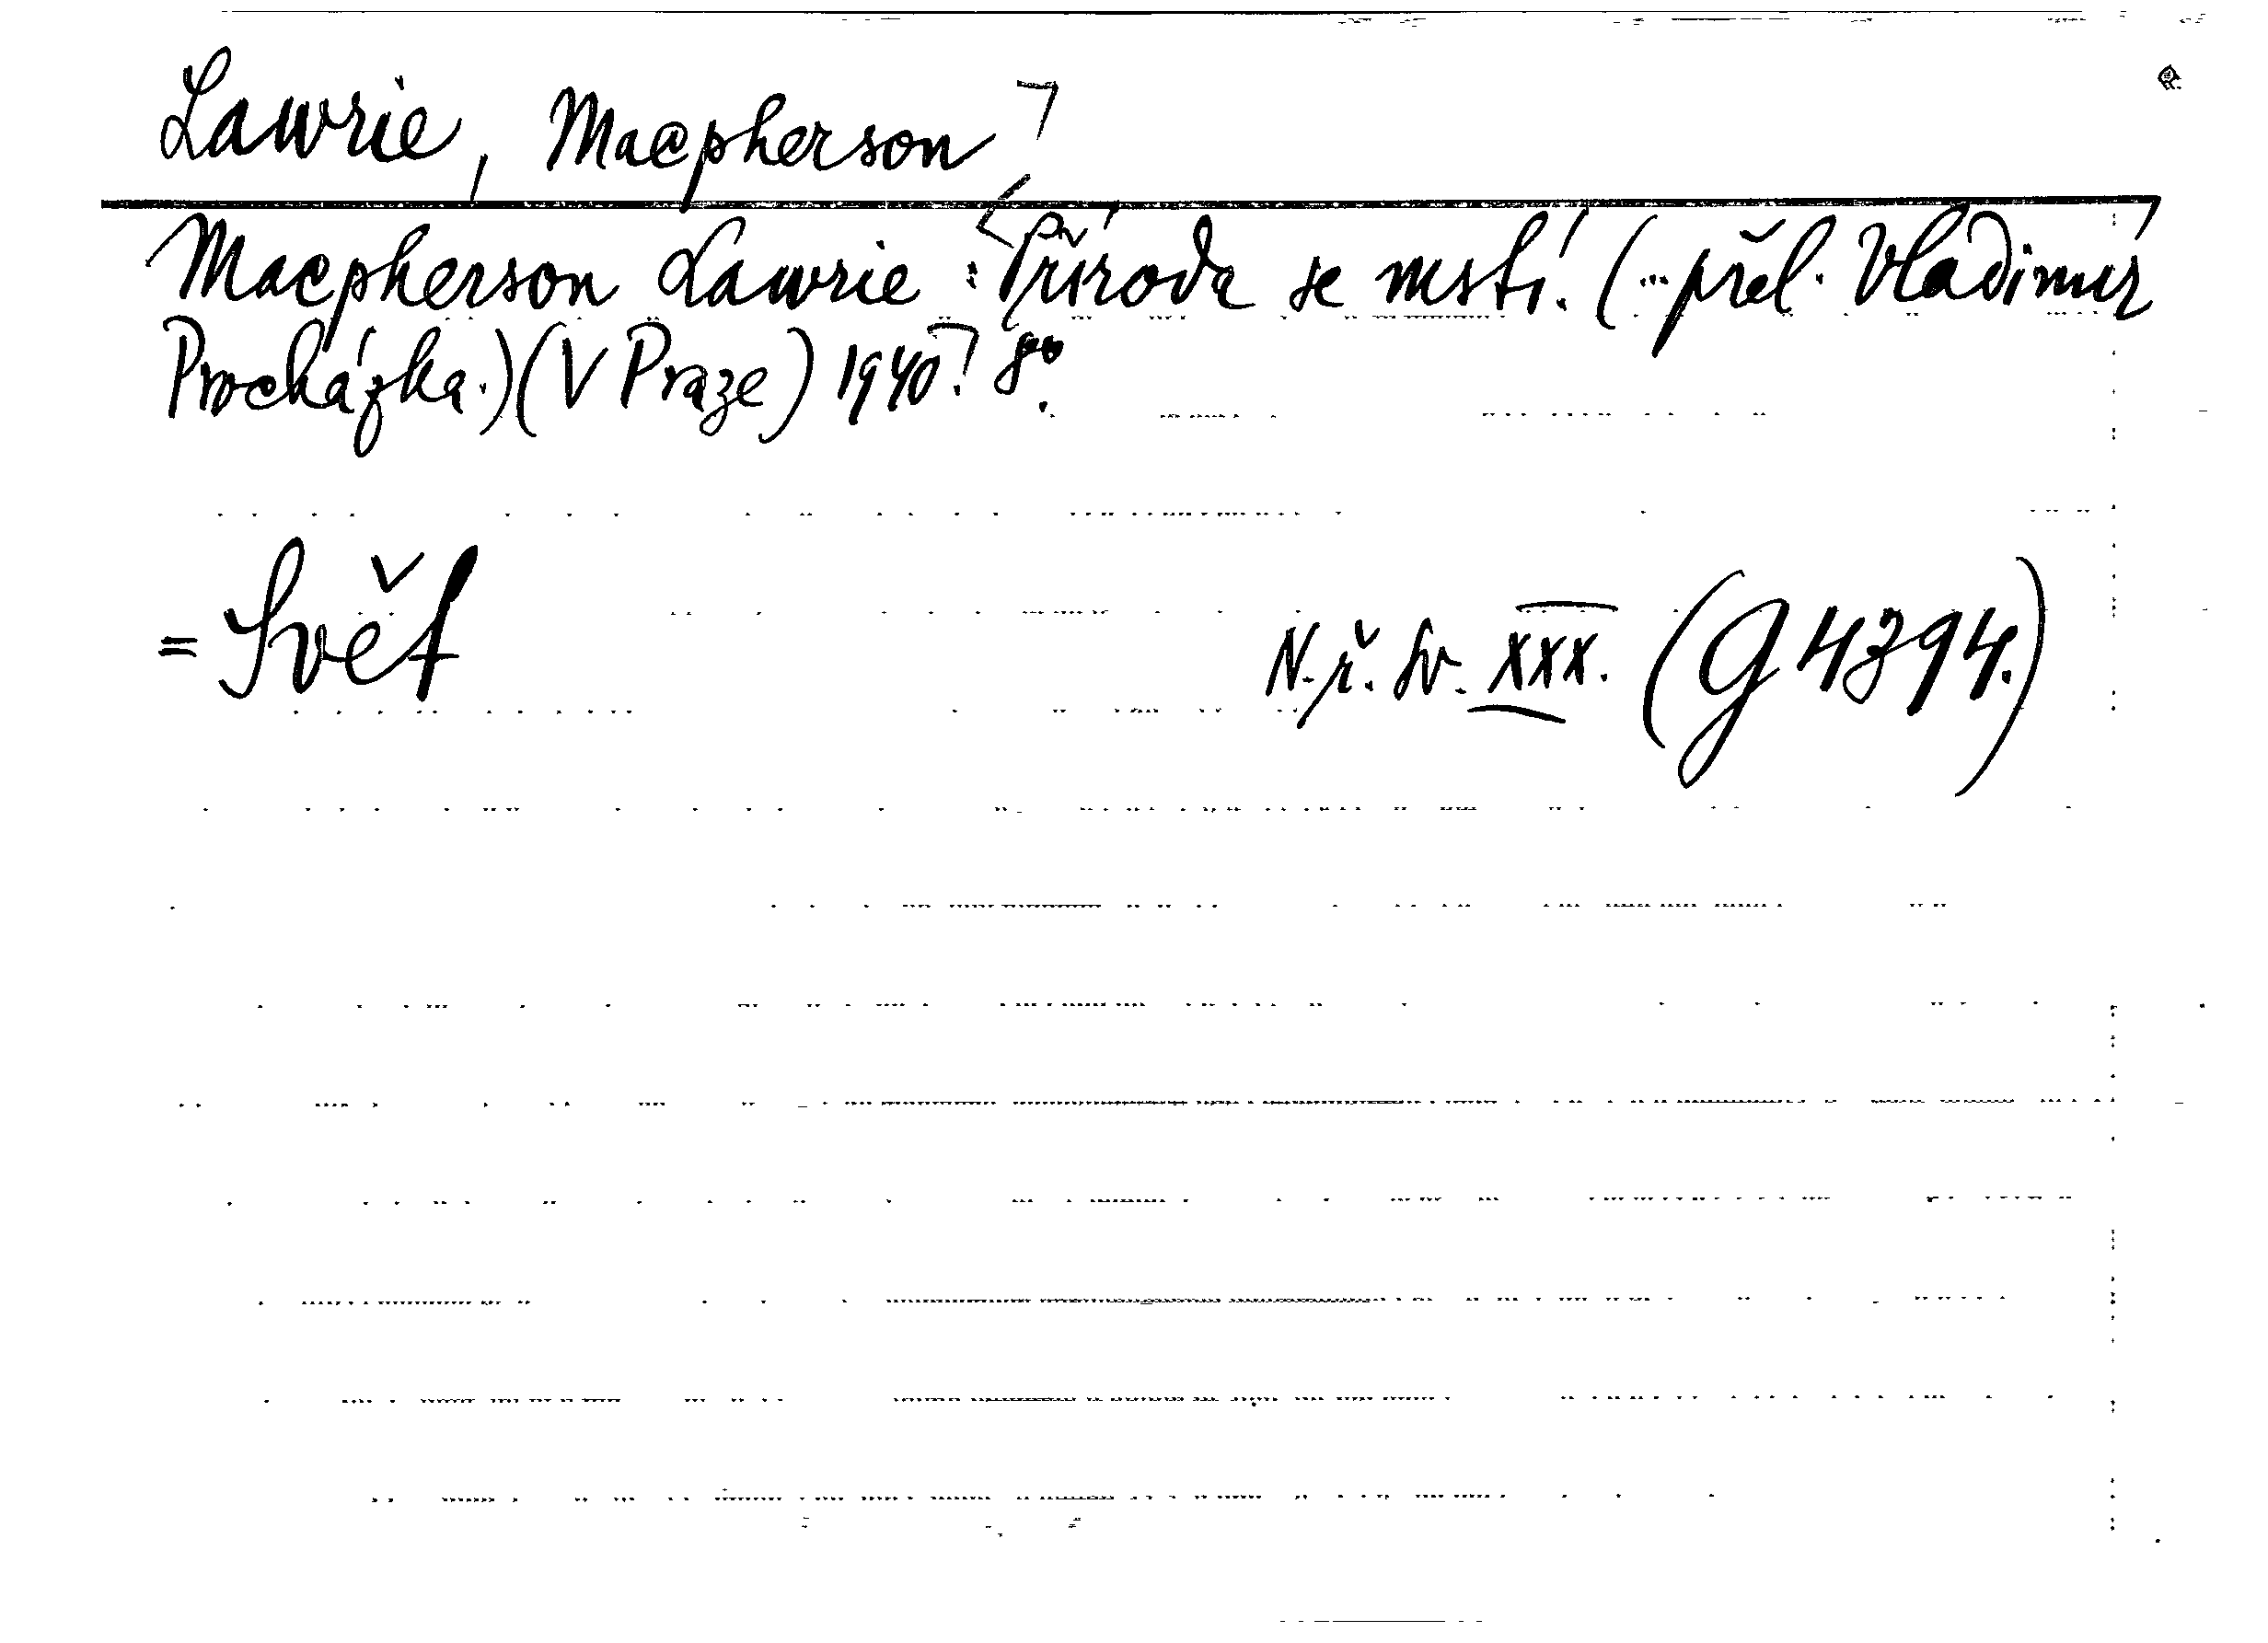 Lawrie, Macpherson
Macpherson Lawrie: Příroda se mstí. (...přel. Vladimír
Procházka.) (V Praze) 1940. 8°.
= Svět N. ř. sv. XXX. (G 4394.)